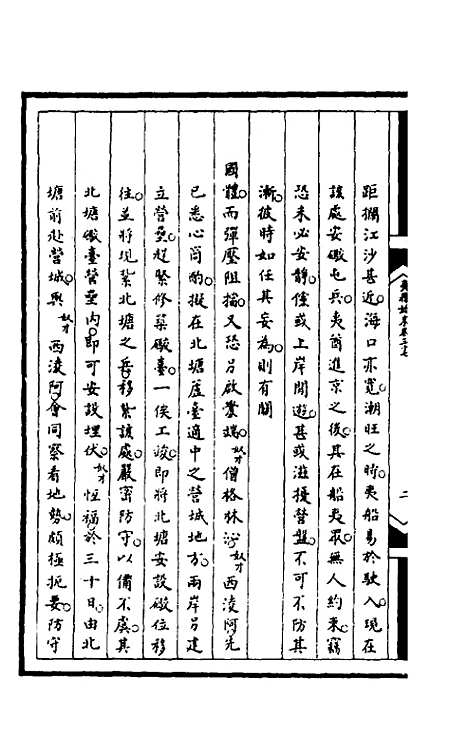 距攔江沙甚近。海口亦寬。潮旺之時。夷船易於駛入。現在
該處安礮屯兵。夷酋進京之後。其在船夷眾。無人約束。竊
恐未必安靜。儻或上岸閒遊。甚或滋擾營盤。不可不防其
漸。彼時如任其妄為。則有關
國體。而彈壓阻擋。又恐另啟釁端。奴才僧格林沁。奴才西淩阿。先
已悉心酌。擬在北塘蘆臺適中之營城地方。兩岸另建
立營壘。趕緊修築礮臺。一俟工竣。即將北塘安設礮位移
往。並將現紮北塘之兵。移紮該處。嚴密防守。以備不虞。其
北塘礮臺營壘內。即可安設埋伏。奴才恆福於三十日。由北
塘前赴營城。與奴才西淩阿會同察看地勢。頗極扼要。防守
二